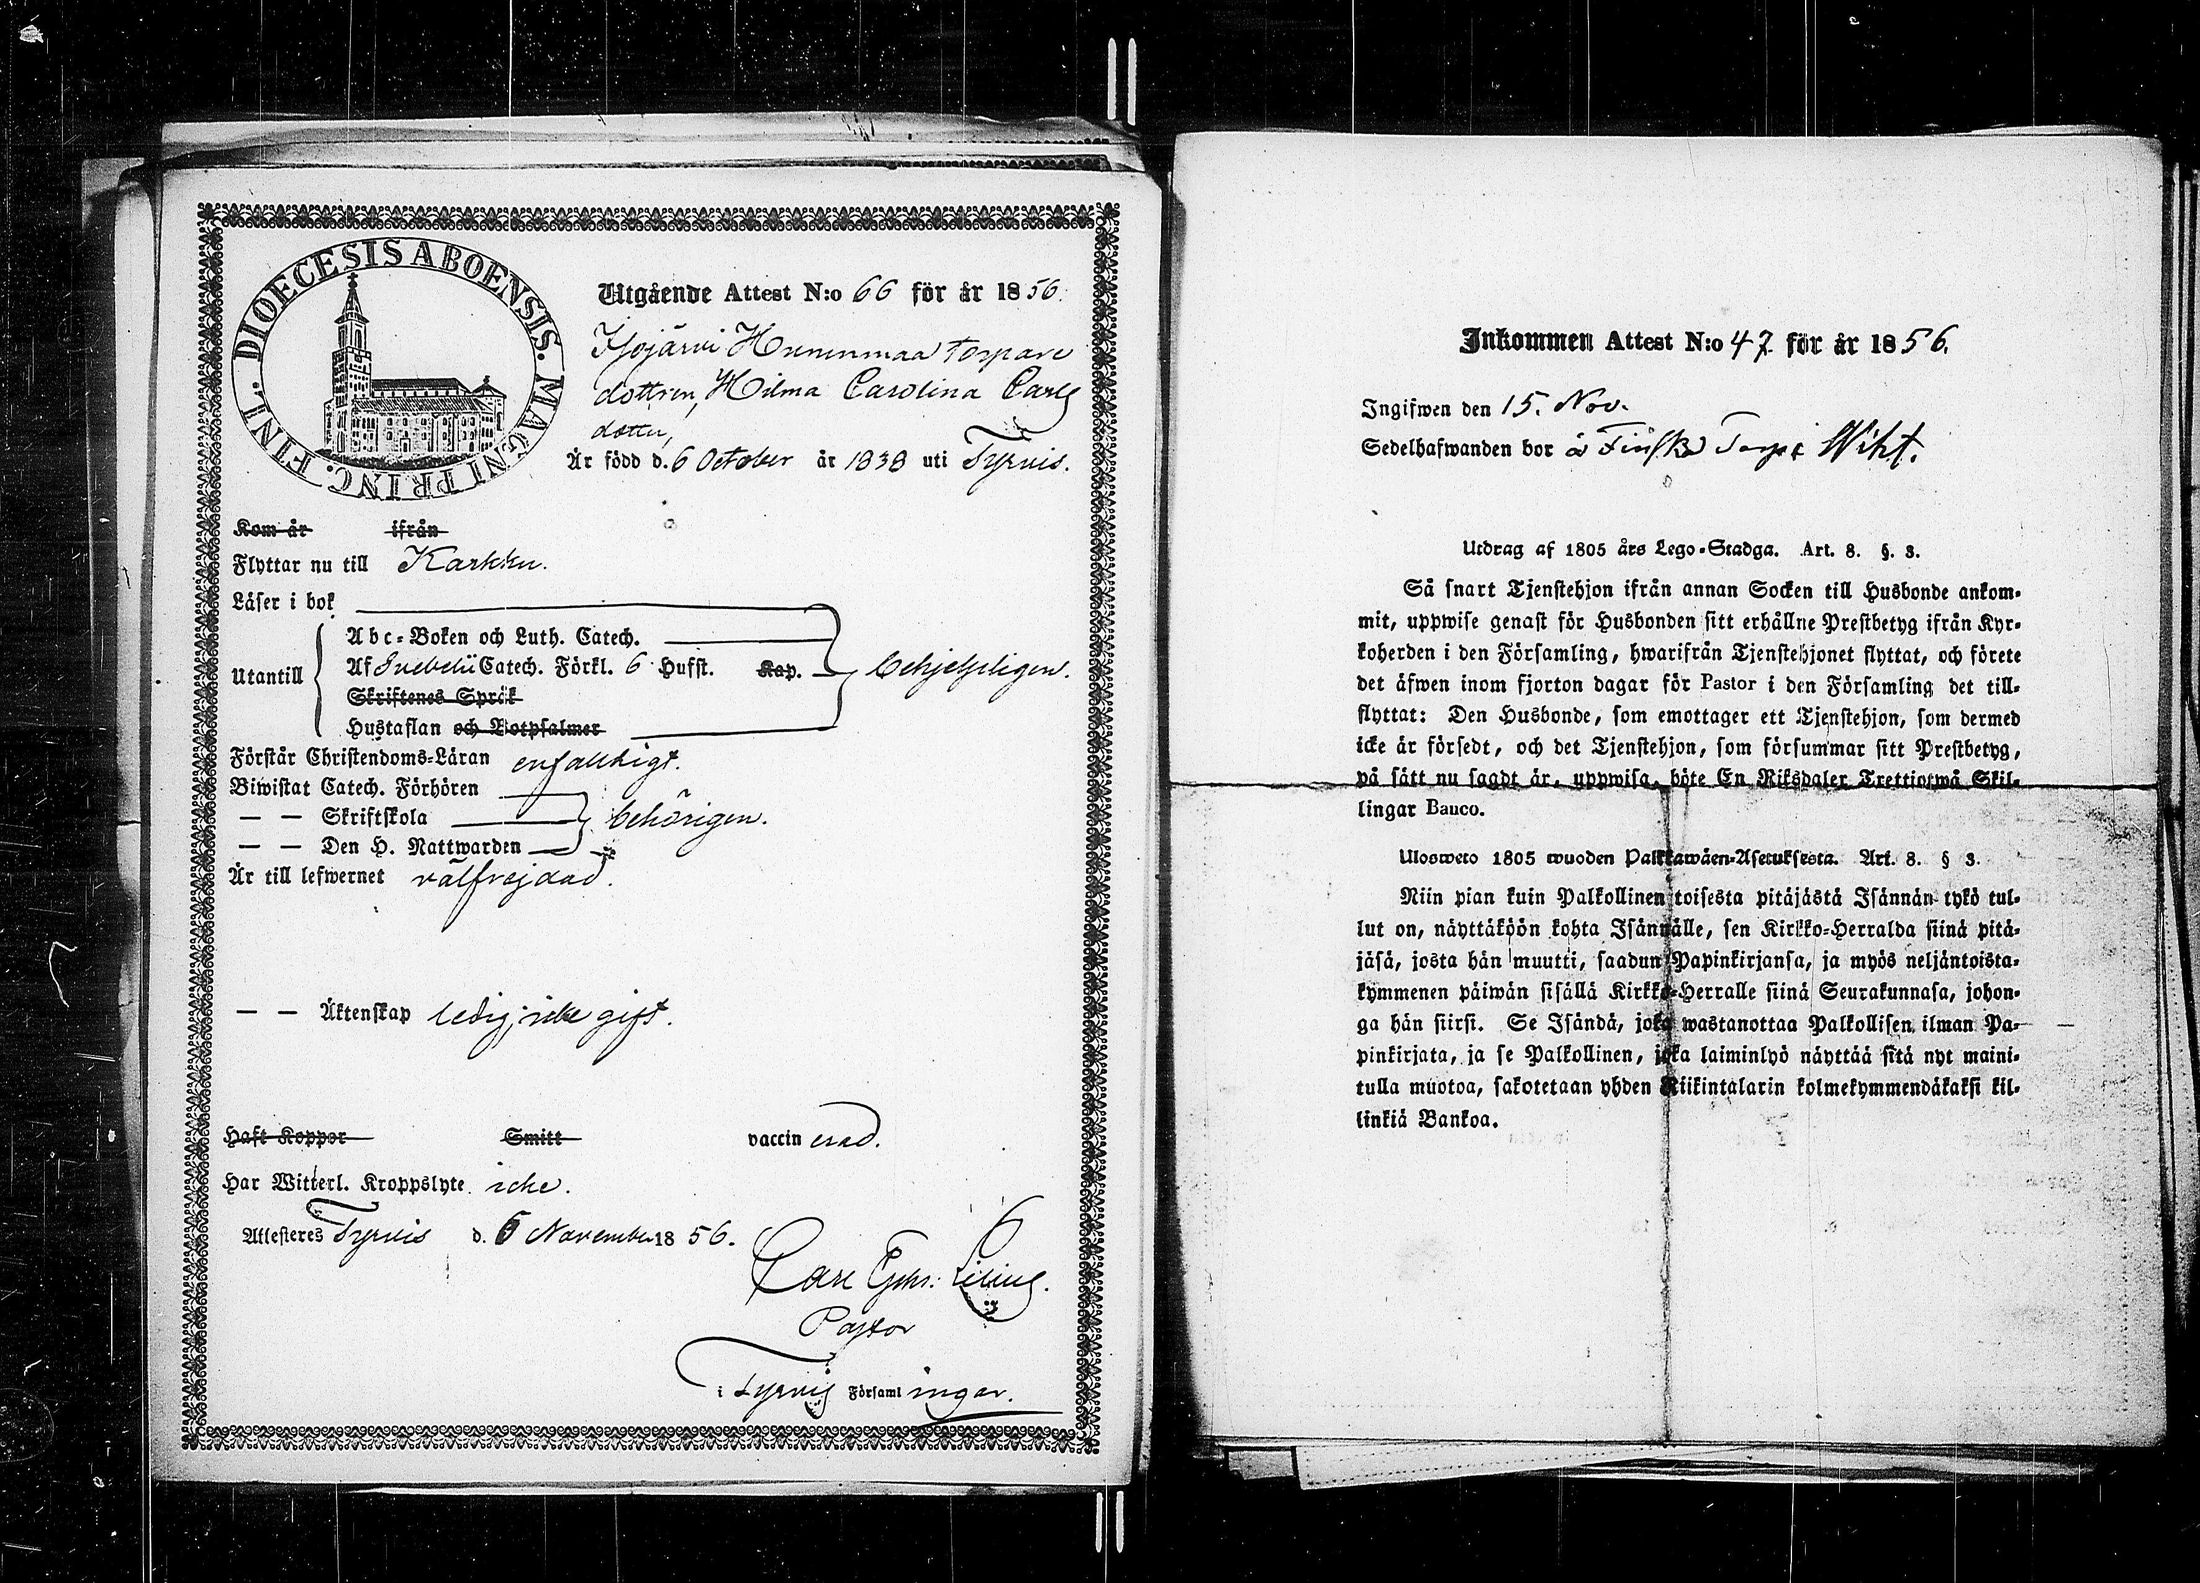 DIOECESIS ABOENSIS. MAGNI PRINC. FINL.
Utgående Attest N:o 66 för år 1856.
Isojärvi Hunnmaa torpare
dottren, Hilma Carolina Carls
dotter,
Är född d. 6 October år 1838 uti Tyrvis.
Kom år ifrån
Flyttar nu till Karkku.
Läser i bok
Utantill
Abc-Boken och Luth. Catech.
Af Svebelii Catech. Förkl. 6 Hufst. Kap.
Skriftenes Språk
Hustaflan och Botpsalmer
behjelpligen.
Förstår Christendoms-Läran enfaldigt.
Biwistat Catech. Förhören
— — Skriftskola behörigen.
— — Den H. Nattwarden
Är till lefwernet välfrejdad.
— — Äktenskap ledig, icke gift.
Haft Koppor Smitt vaccinerad.
Har Witterl. Kroppslyte icke.
Attesteras Tyrvis d. 6 November 1856.
Carl Lilius.
Pastor
i Tyrvis Församlingar.
Inkommen Attest N:o 47 för år 1856.
Ingifwen den 15. Nov.
Sedelhafwanden bor å Torpe Wiht.
Utdrag af 1805 års Lego-Stadga. Art. 8. §. 3.
Så snart Tjenstehjon ifrån annan Socken till Husbonde ankom-
mit, uppwise genast för Husbonden sitt erhållne Prestbetyg ifrån Kyr-
koherden i den Församling, hwarifrån Tjenstehjonet flyttat, och förete
det äfwen inom fjorton dagar för Pastor i den Församling det till-
flyttat: Den Husbonde, som emottager ett Tjenstehjon, som dermed
icke är försedt, och det Tjenstehjon, som försummar sitt Prestbetyg,
på sätt nu sagdt är, uppwisa, böte En Riksdaler Trettiotwå Skil-
lingar Banco.
Ulosweto 1805 wuoden Palkkawäen-Asetuksesta. Art. 8. § 3.
Niin pian kuin Palkollinen toisesta pitäjästä Isännän tykö tul-
lut on, näyttäköön kohta Isännälle, sen Kirkko-Herralda siinä pitä-
jäsä, josta hän muutti, saadun Papinkirjansa, ja myös neljäntoista-
kymmenen päiwän sisällä Kirkko-Herralle siinä Seurakunnasa, johon-
ga hän siirsi. Se Isändä, joka wastanottaa Palkollisen ilman Pa-
pinkirjata, ja se Palkollinen, joka laiminlyö näyttää sitä nyt maini-
tulla muotoa, sakotetaan yhden Riikintalarin kolmekymmendäkaksi kil-
linkiä Bankoa.